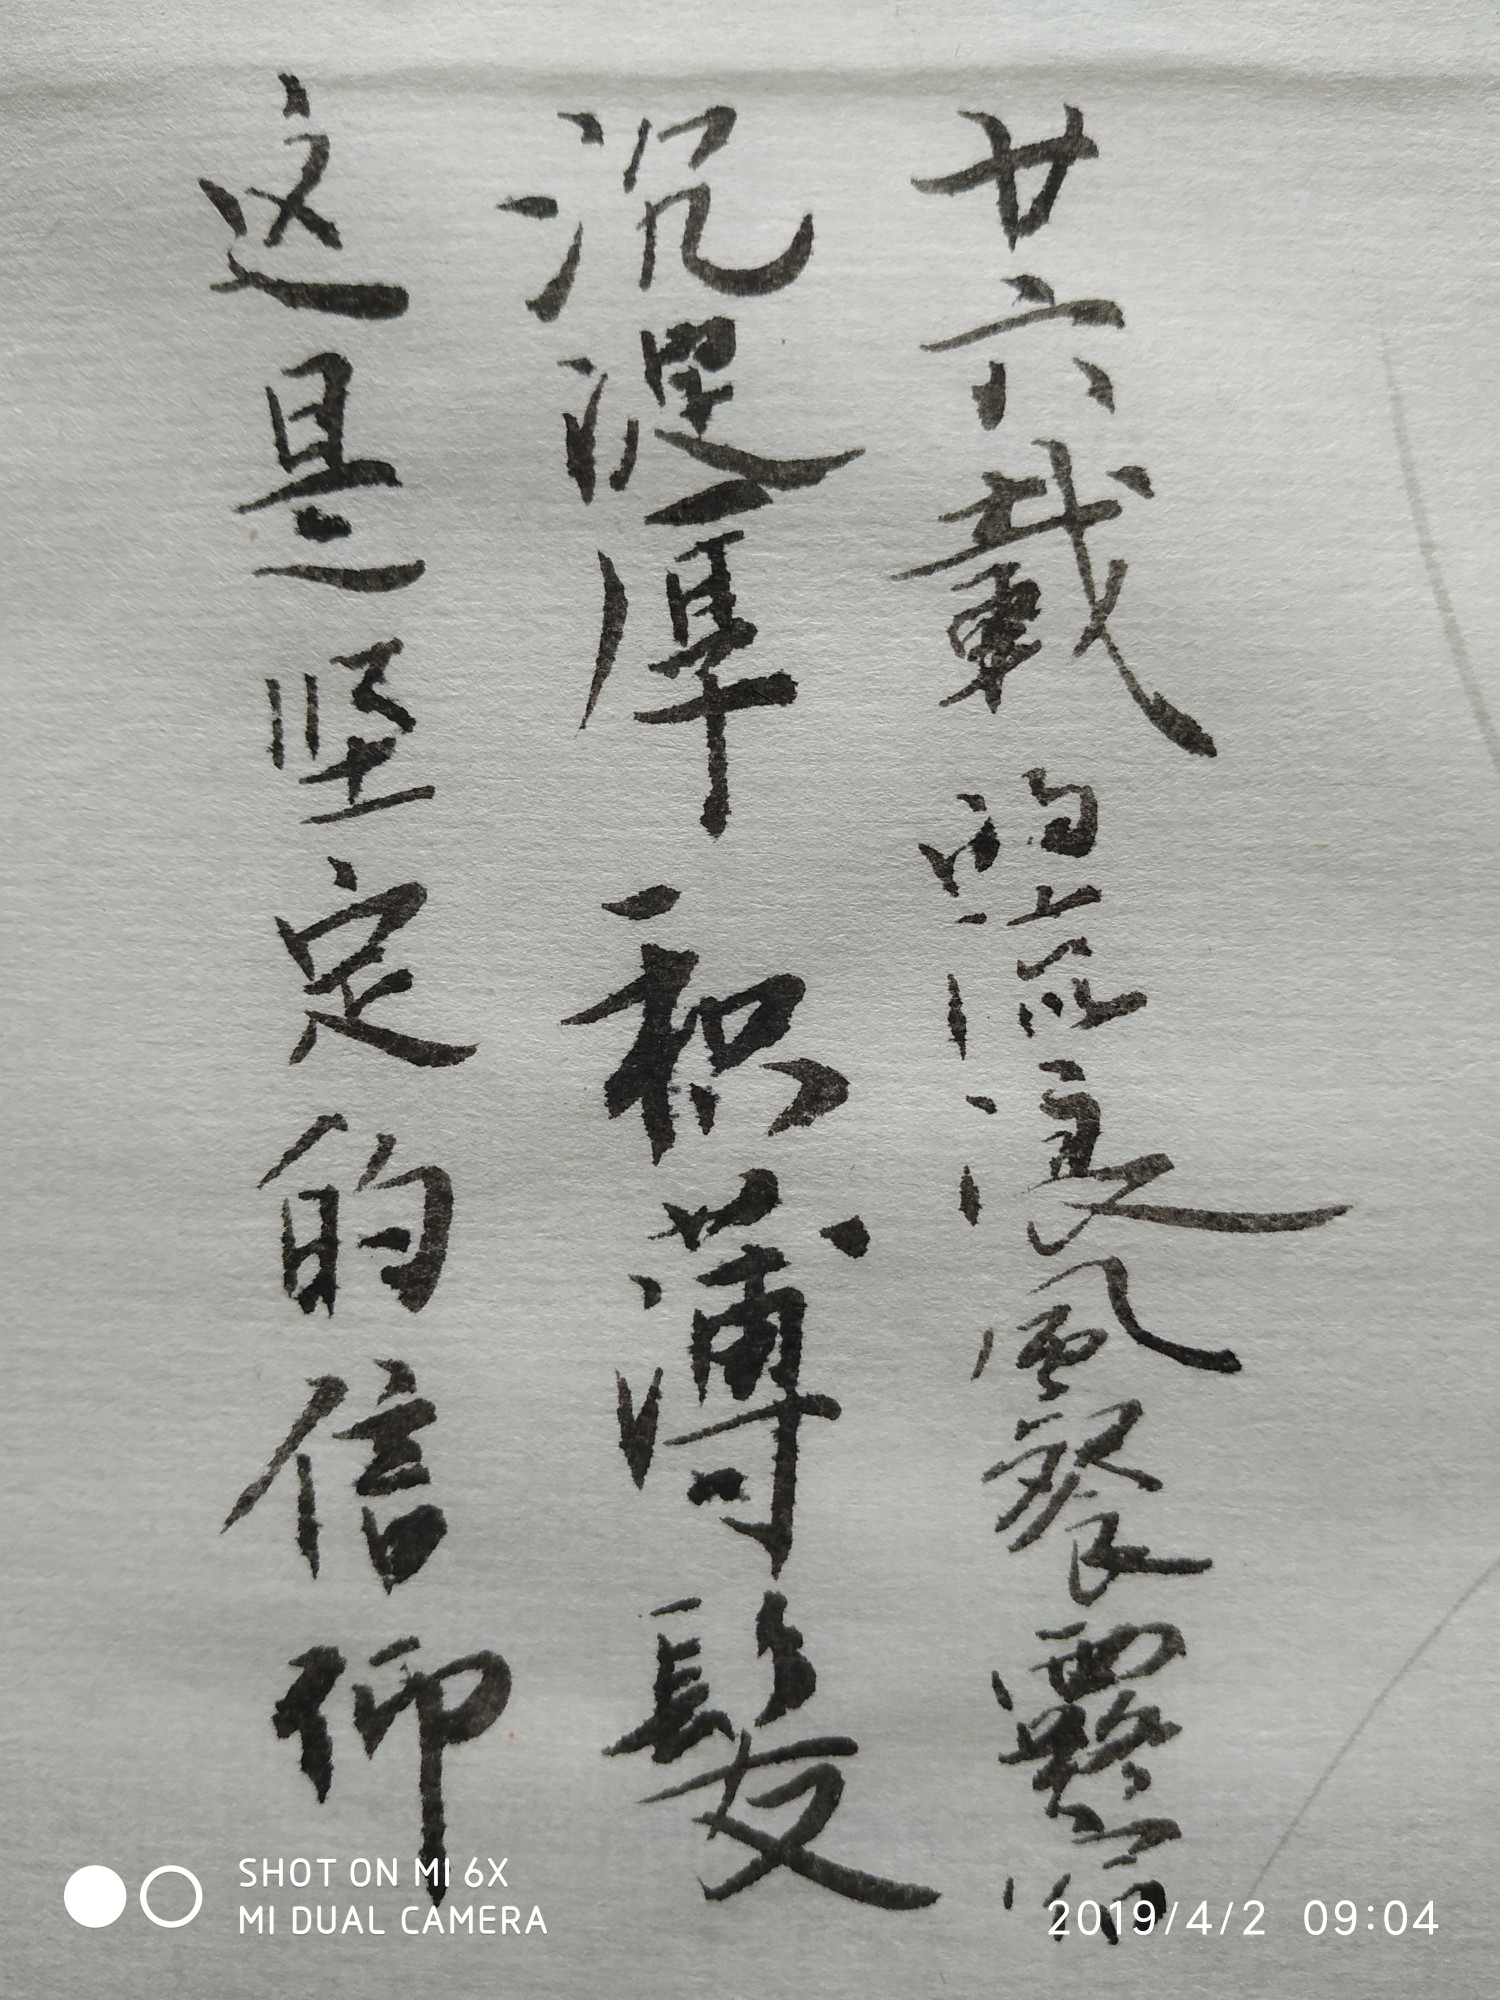 廿六载的流浪風餐露宿
沉浸厚积薄髮
这是坚定的信仰
SHOT ON MI 6X
MI DUAL CAMERA
2019/4/2 09:04